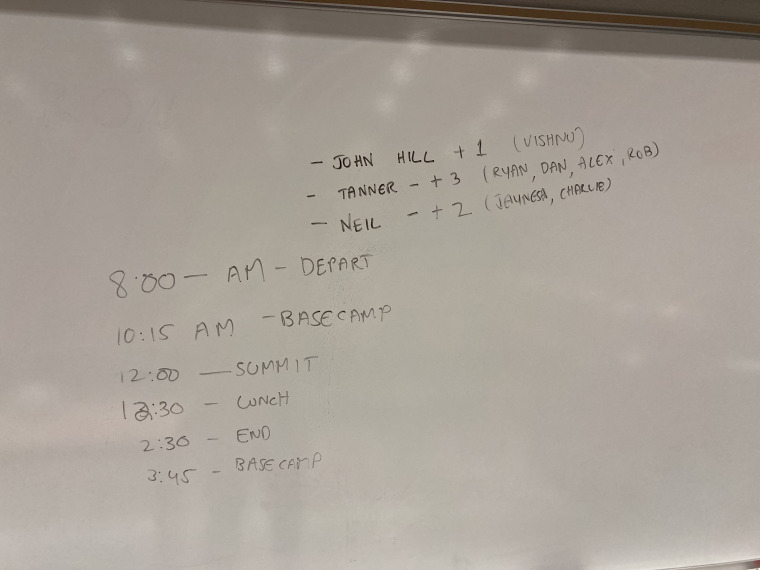 - JOHN HILL + 1 (VISHNU)
- TANNER - + 3 (RYAN, DAN, ALEX, ROB)
- NEIL - + 2 (JAYNESH, CHARLIE)
8:00 - AM - DEPART
10:15 AM - BASECAMP
12:00 - SUMMIT
12:30 - LUNCH
2:30 - END
3:45 - BASECAMP